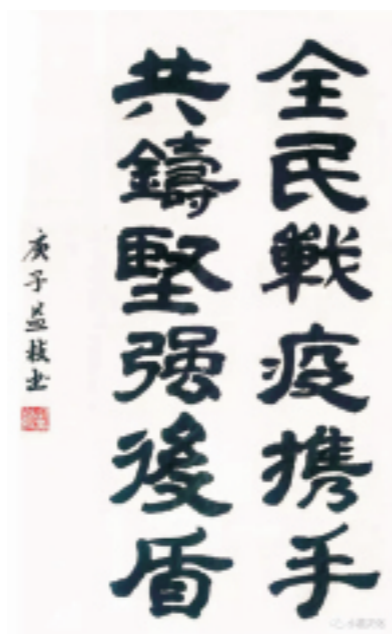 全民戰疫攜手
共鑄堅强後盾
庚子益枝书